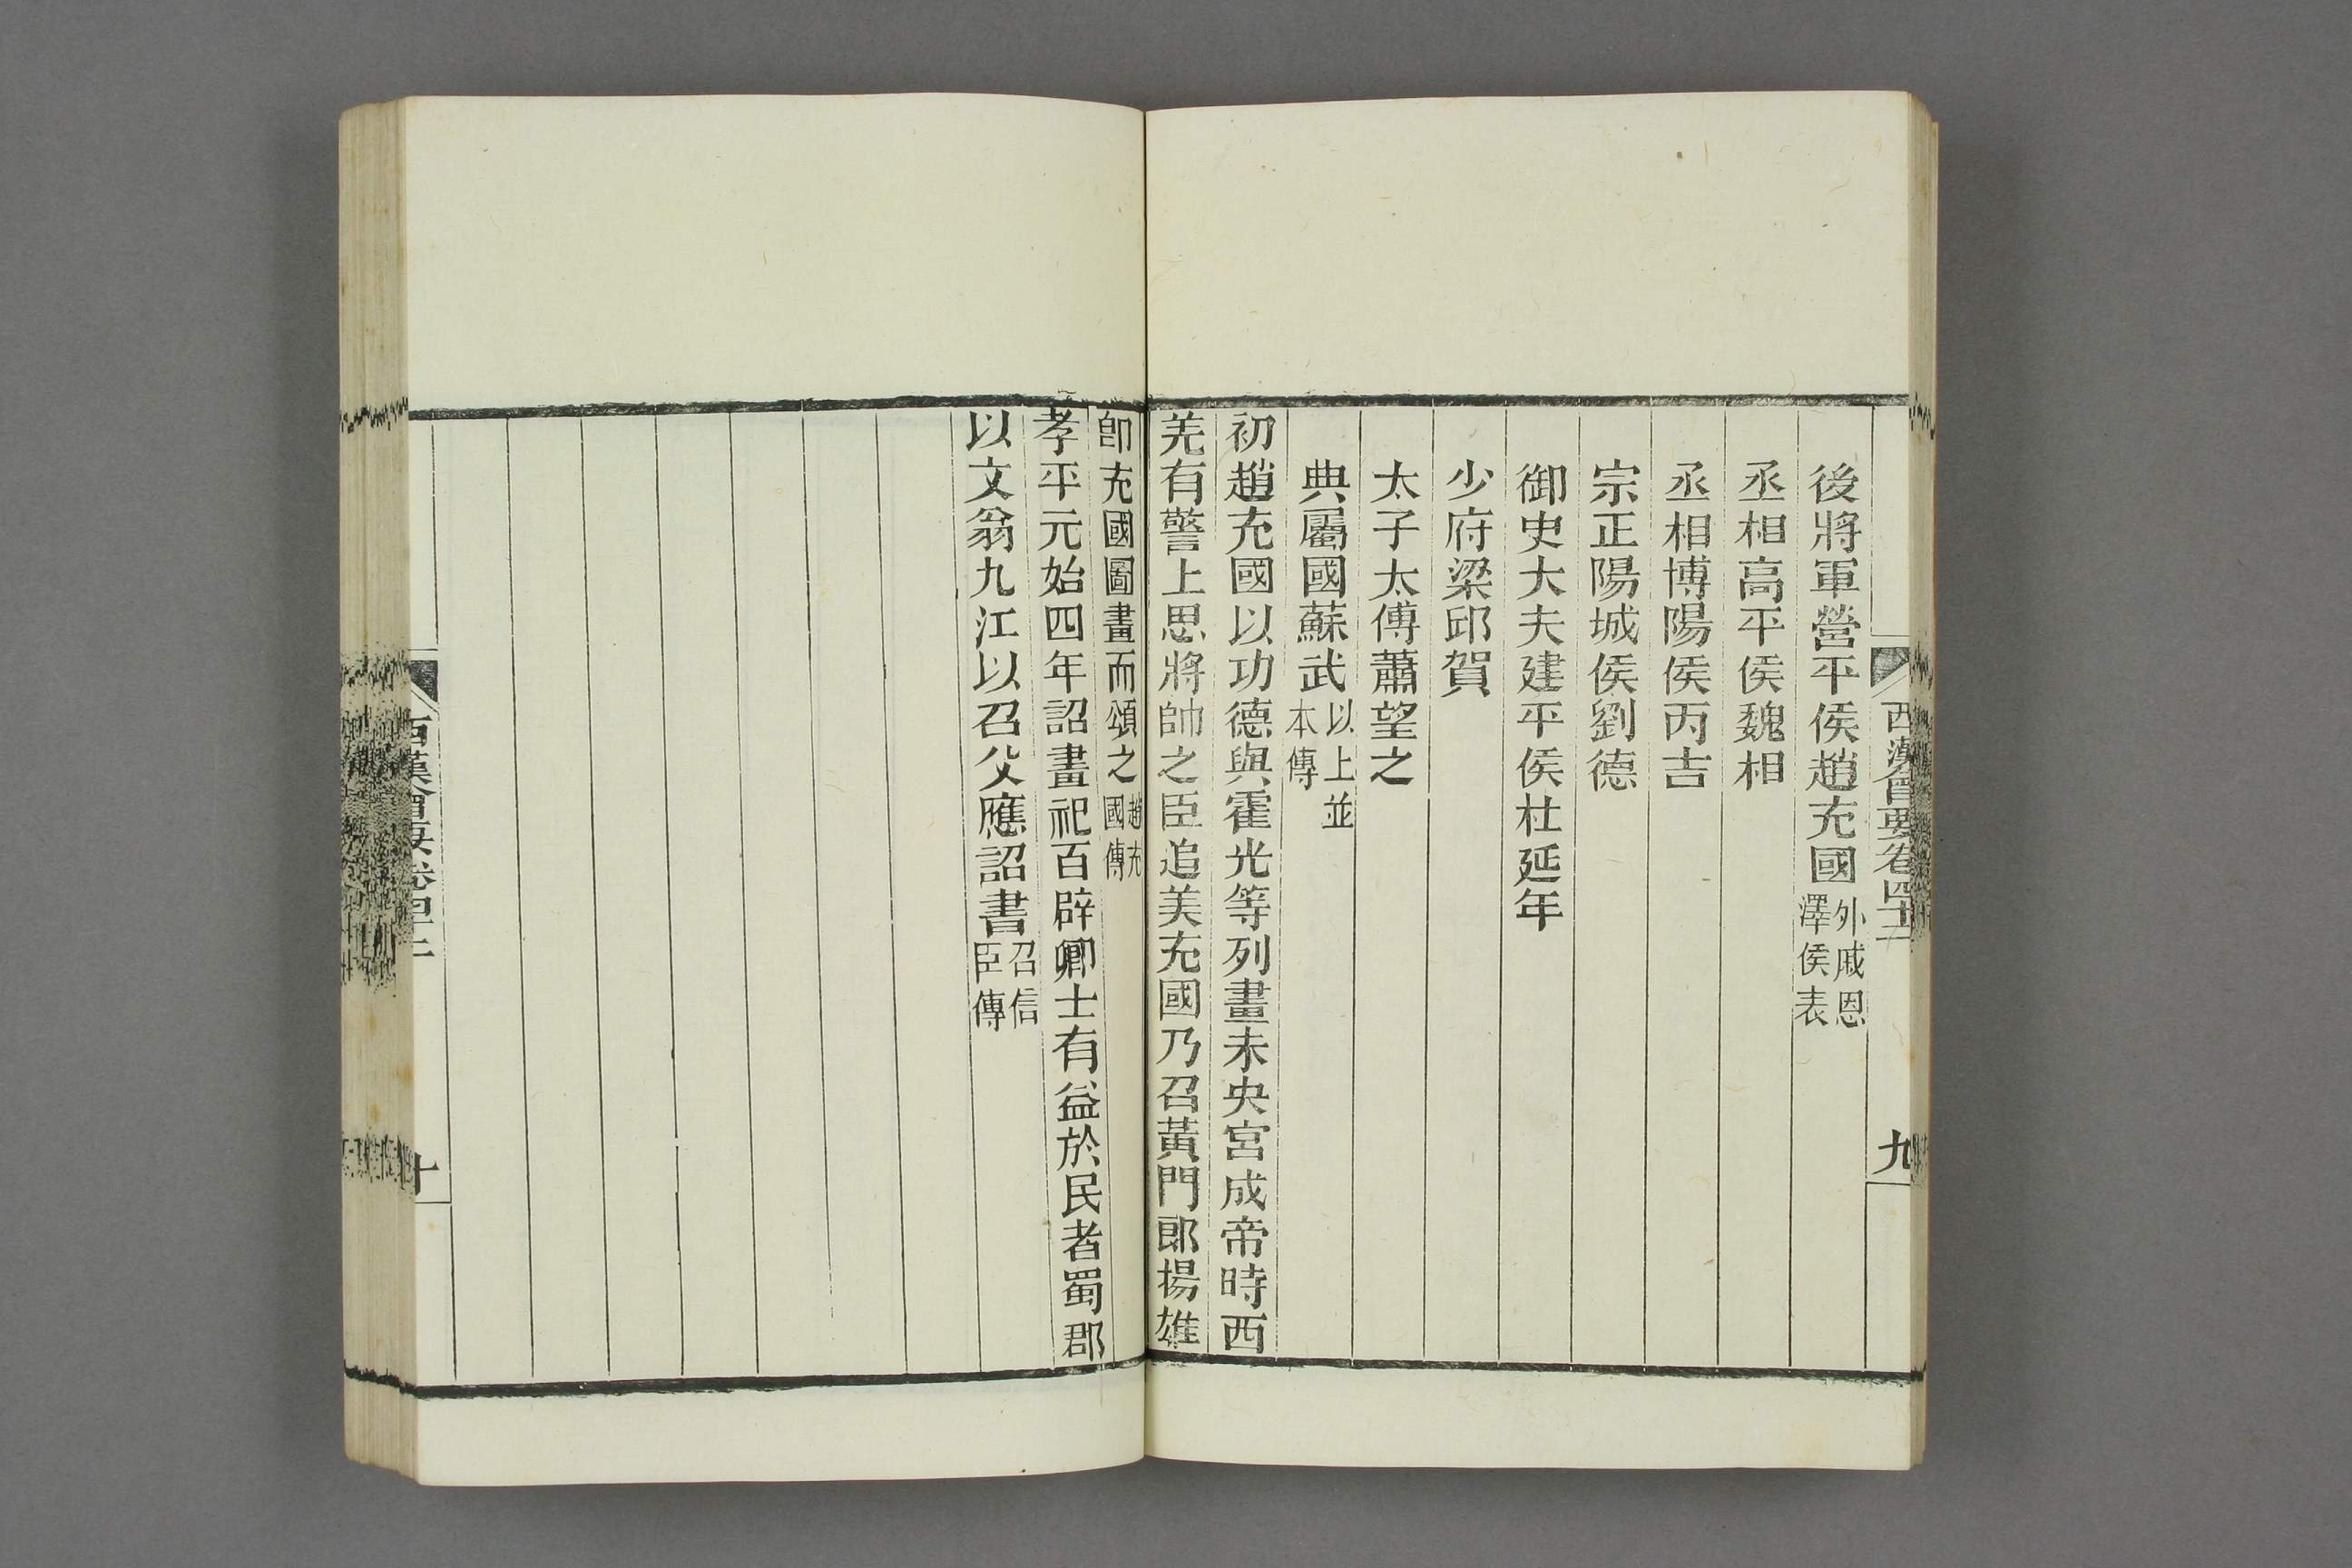 西漢會要卷四十二
九
後將軍營平侯趙充國外戚恩澤侯表
丞相高平侯魏相
丞相博陽侯丙吉
宗正陽城侯劉德
御史大夫建平侯杜延年
少府梁邱賀
太子太傅蕭望之
典屬國蘇武以上並本傳
初趙充國以功德與霍光等列畫未央宮成帝時西
羌有警上思將帥之臣追美充國乃召黃門郎揚雄
卽充國圖畫而頌之趙充國傳
孝平元始四年詔書祀百辟卿士有益於民者蜀郡
以文翁九江以召父應詔書召信臣傳
西漢會要卷四十二
十